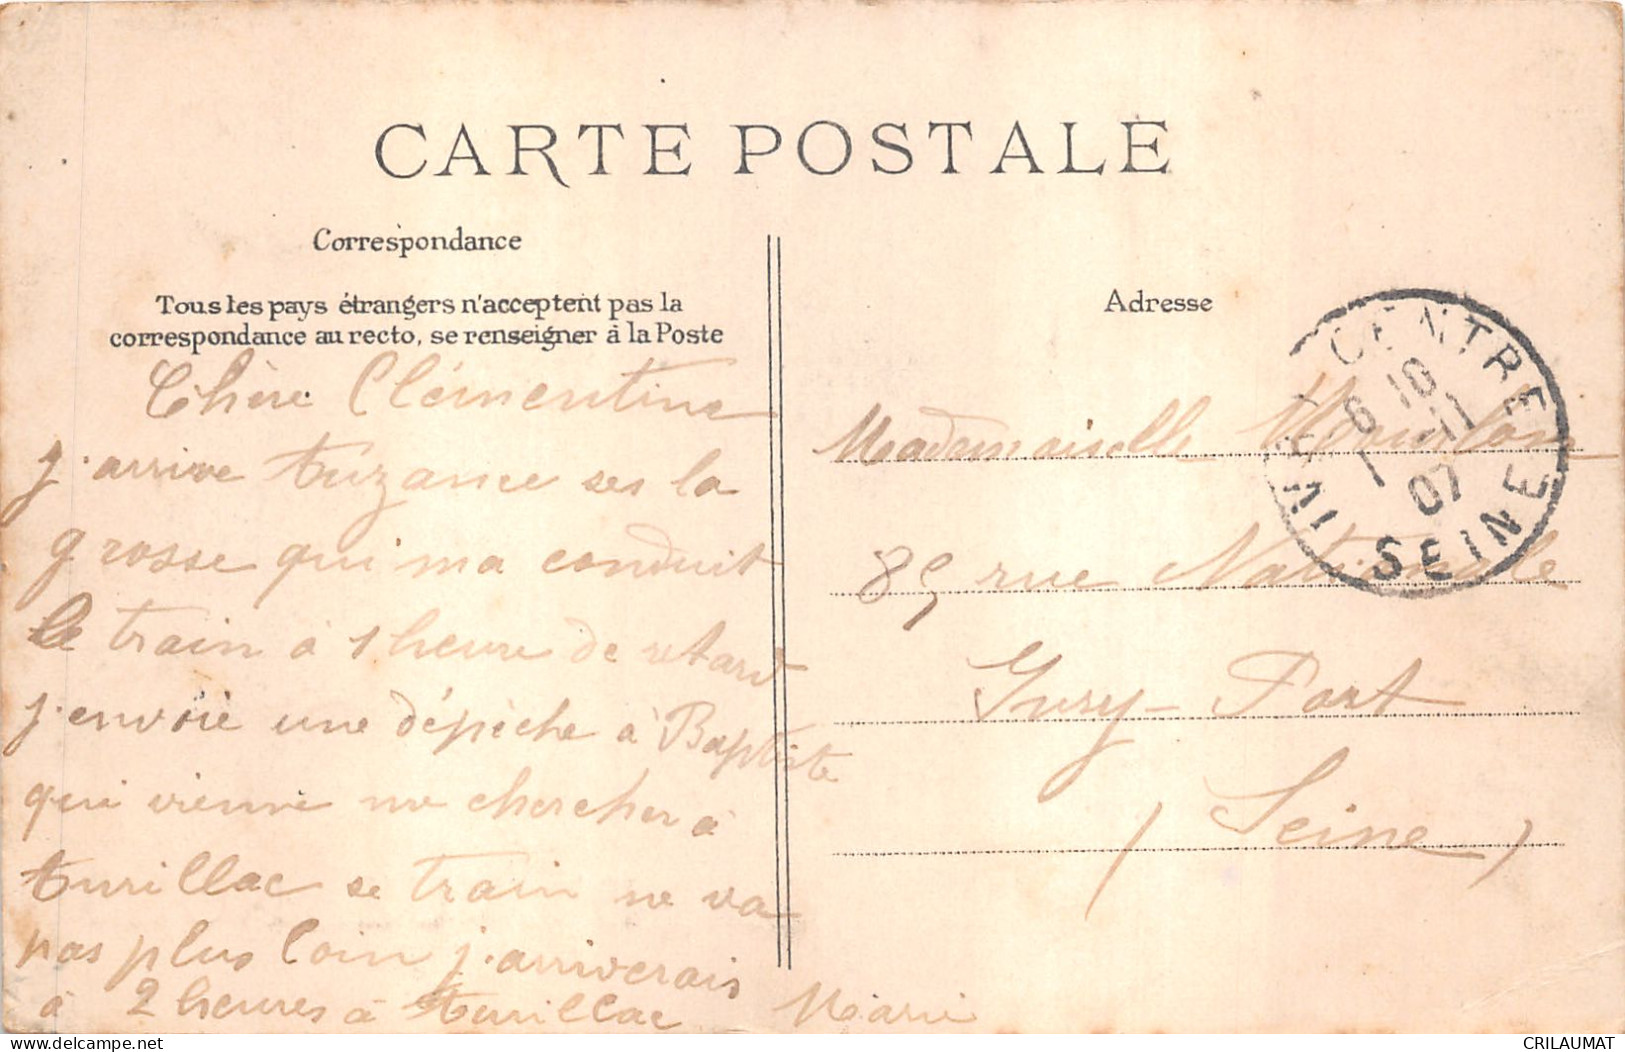 CARTE POSTALE
Correspondance
Tous les pays étrangers n'acceptent pas la
correspondance au recto, se renseigner à la Poste
Chère Clémentine
j'arrive tuzance ses la
grosse qui ma conduit
le train à 1 heure de retard
j'envoie une dépèche à Baptiste
qui vienne me chercher à
turillac se train ne va
pas plus loin j'arriverais
à 2 heures à turillac Marie
Adresse
Mademoiselle
85 rue Nationale
Ivry-Port
(Seine)
IVRY CENTRE
6 10
1 -11
07
SEINE
delcampe.net
CRILAUMAT